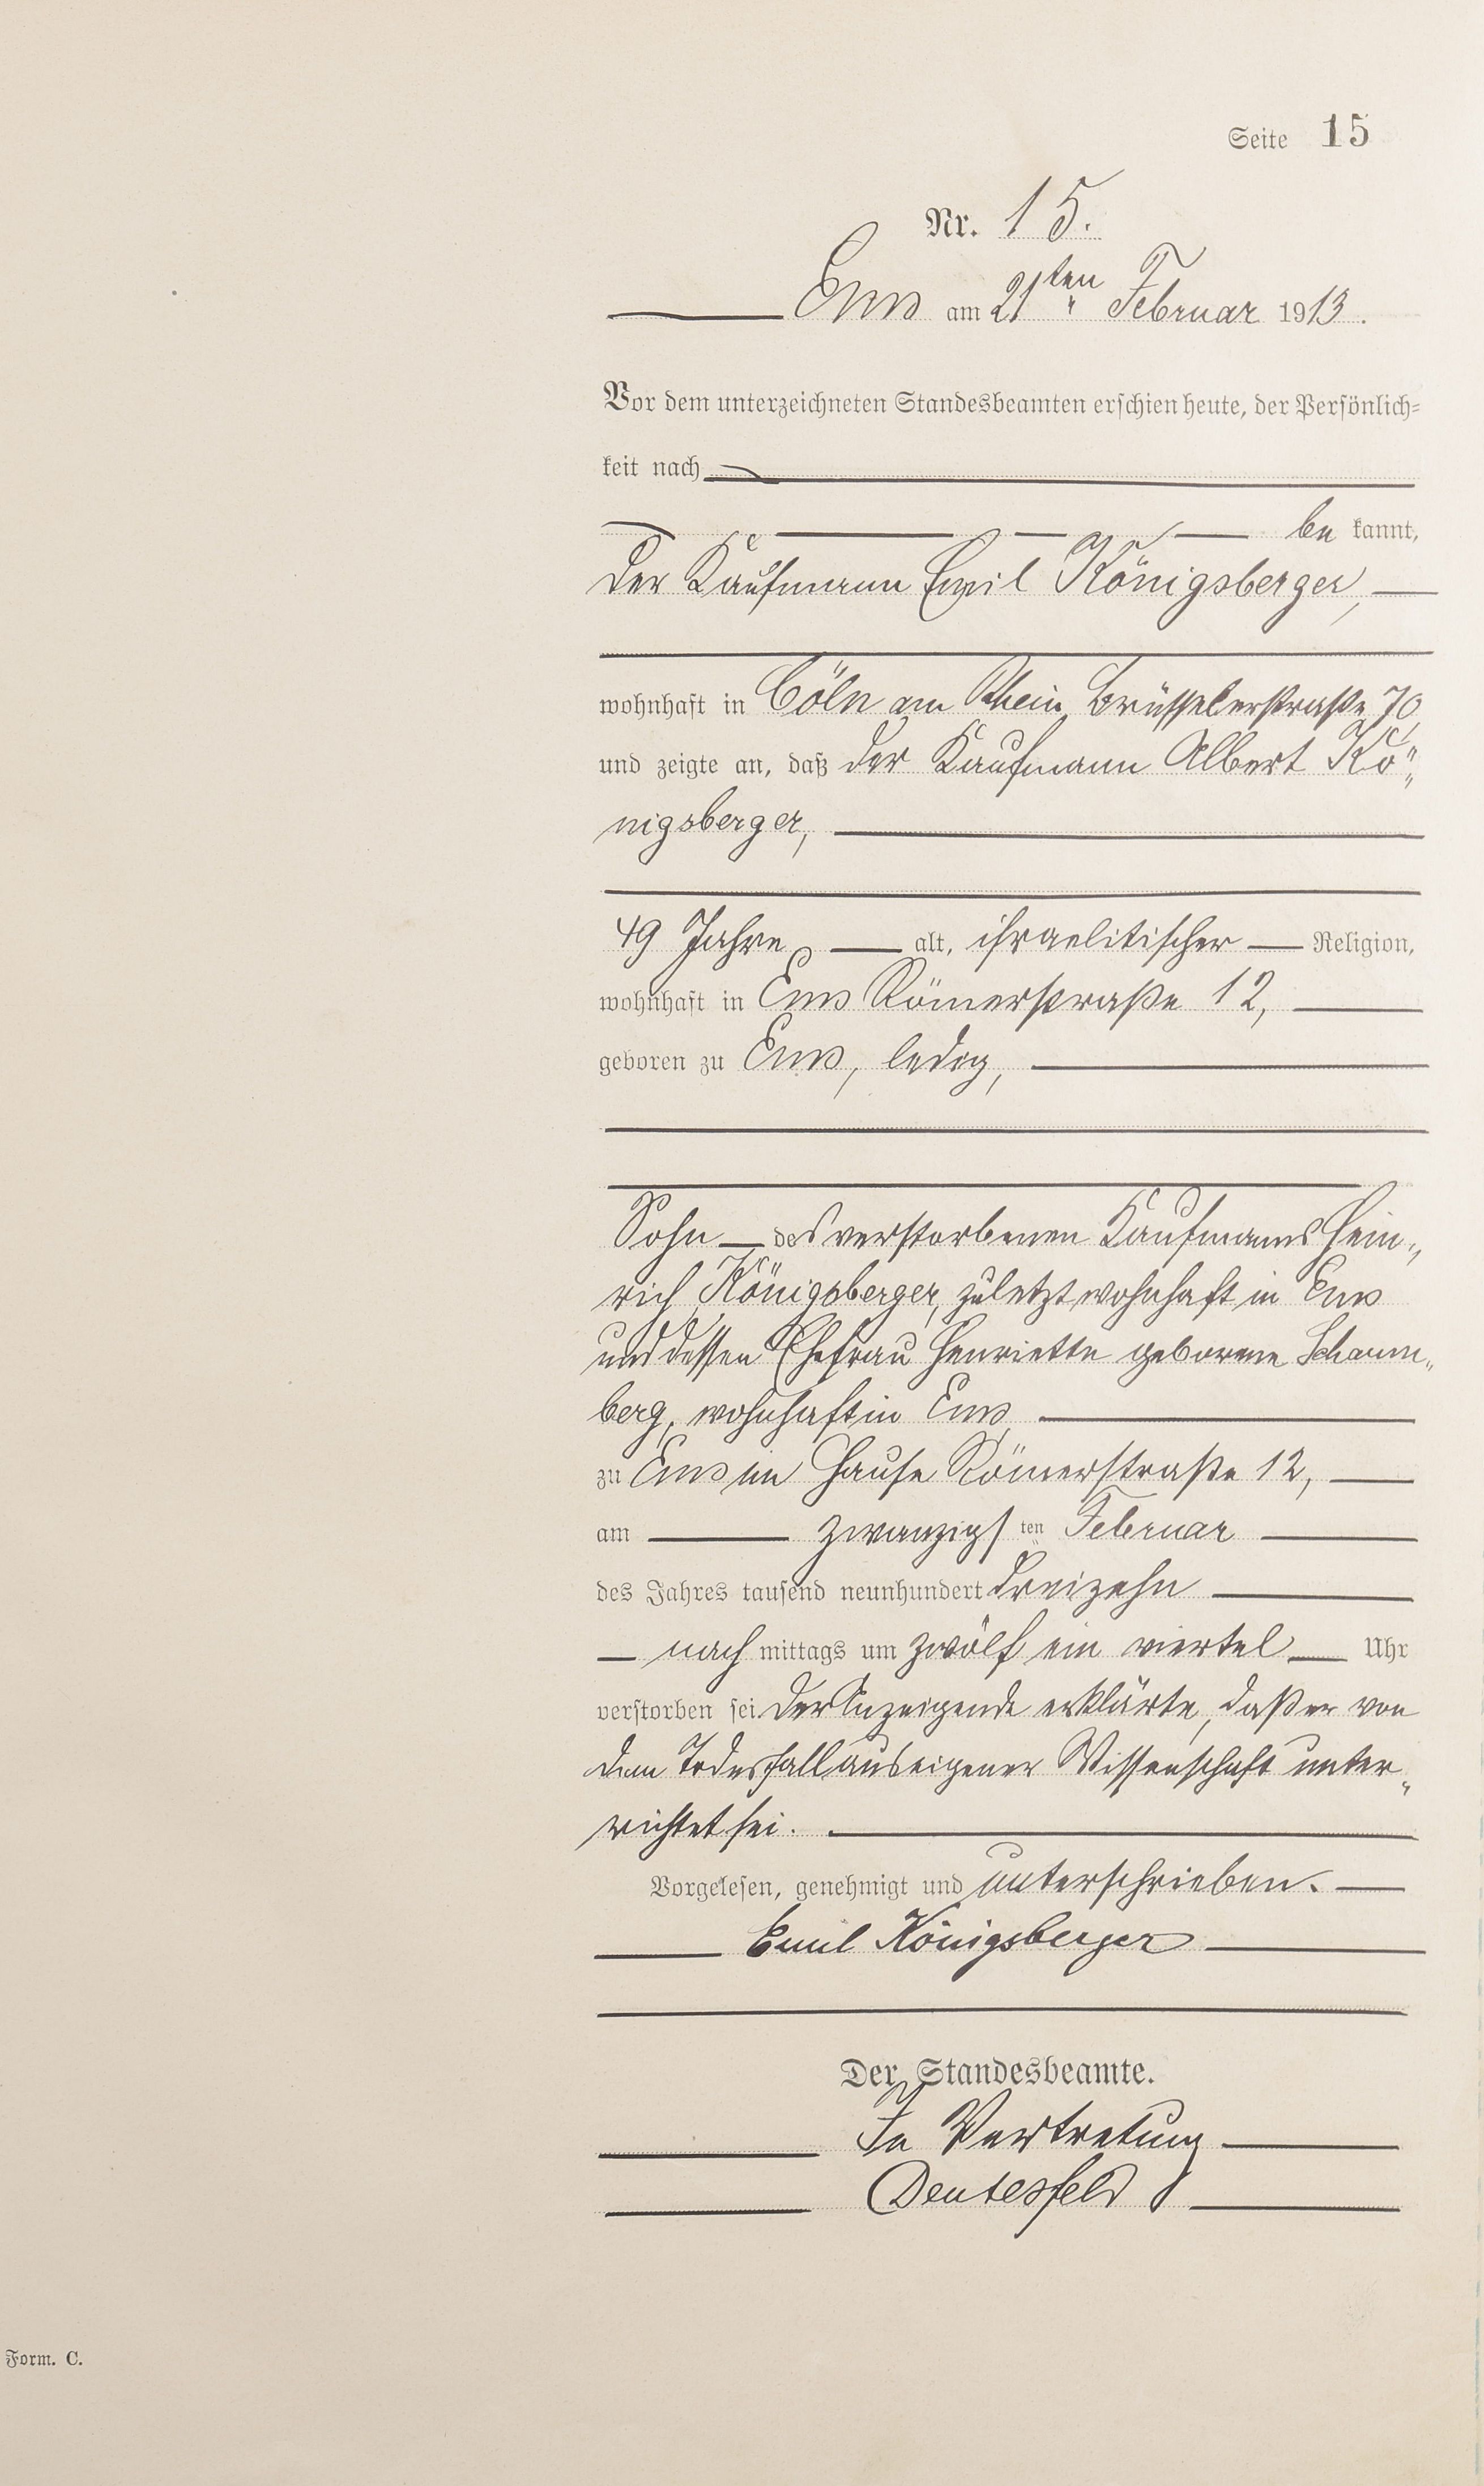 Seite 15
Nr. 15.
Ems am 21ten Februar 1913.
Vor dem unterzeichneten Standesbeamten erschien heute, der Persönlich=
keit nach
be kannt,
der Kaufmann Emil Königsberger,
wohnhaft in Cöln am Rhein, Brüsselerstraße 70,
und zeigte an, daß der Kaufmann Albert Kö„
nigsberger,
49 Jahre alt, israelitischer Religion,
wohnhaft in Ems Römerstraße 12,
geboren zu Ems, ledig,
Sohn des verstorbenen Kaufmanns Hein„
rich Königsberger, zuletzt wohnhaft in Ems
und dessen Ehefrau Henriette geborene Schaum„
berg, wohnhaft in Ems
zu Ems im Hause Römerstraße 12,
am zwanzigsten Februar
des Jahres tausend neunhundert dreizehn
nach mittags um zwölf ein viertel Uhr
verstorben sei. Der Anzeigende erklärte, daß er von
dem Todesfall aus eigener Wissenschaft unter„
richtet sei.
Vorgelesen, genehmigt und unterschrieben.
Emil Königsberger
Der Standesbeamte.
In Vertretung
Deutesfeld
Form. C.